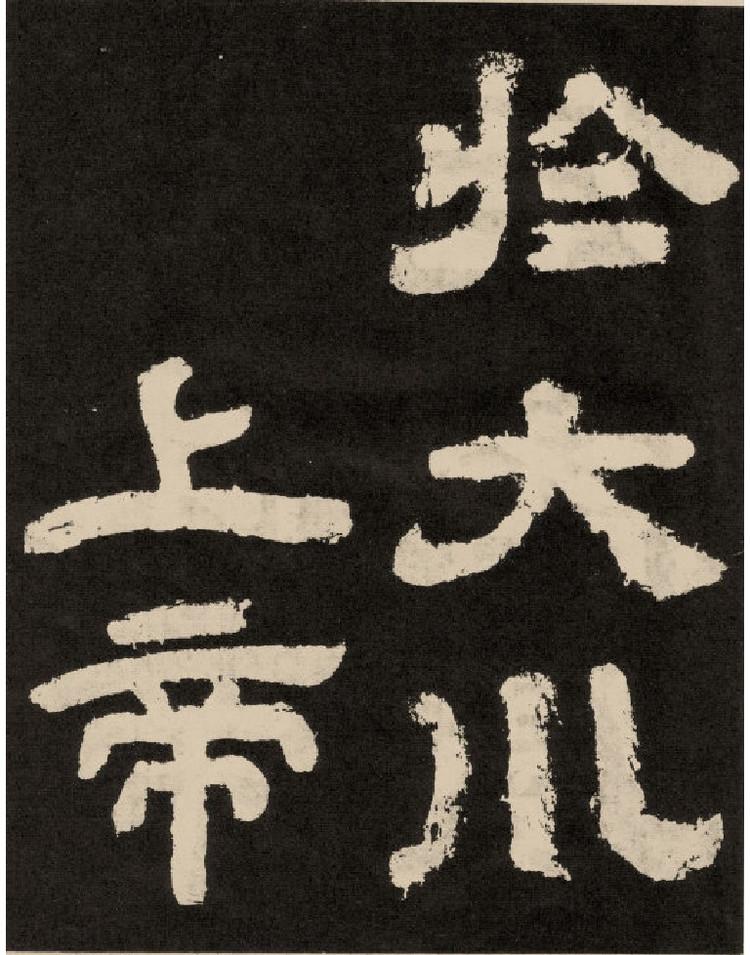 於大川
上帝